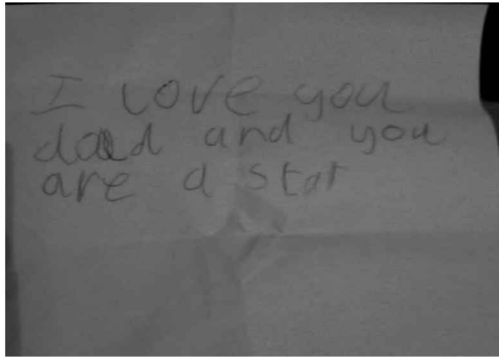 I love you
dad and you
are a star